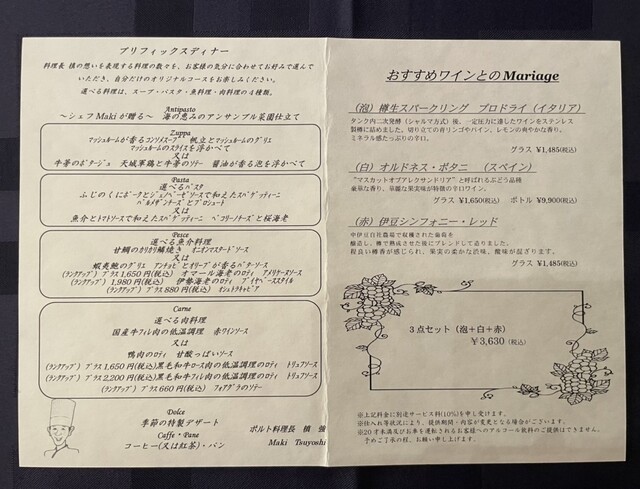 プリフィックスディナー
料理長 槙の想いを表現する料理の数々を、お客様の気分に合わせてお好みで選んで
いただき、自分だけのオリジナルコースをお楽しみください。
選べる料理は、スープ・パスタ・魚料理・肉料理の4種類。
Antipasto
～シェフMakiが贈る～ 海の恵みのアンサンブル菜園仕立て
Zuppa
マッシュルームが香るコンソメスープ 帆立とマッシュルームのグリエ
マッシュルームのスライスを浮かべて
又は
牛蒡のポタージュ 天城軍鶏と牛蒡のソテー 醤油が香る泡を浮かべて
Pasta
選べるパスタ
ふじのくにポークとジェノベーゼソースで和えたスパゲッティーニ
パルメザンチーズとプロシュート
又は
魚介とトマトソースで和えたスパゲッティーニ ペコリーノチーズと桜海老
Pesce
選べる魚介料理
甘鯛のカリカリ鱗焼き オニオンマスタードソース
又は
蝦夷鮑のグリエ アンチョビとオリーブが香るバターソース
(ランクアップ) プラス 1,650円(税込) オマール海老のロティ アメリケーヌソース
(ランクアップ) 1,980円(税込) 伊勢海老のロティ ブイヤベーススタイル
(ランクアップ) プラス 880円(税込) オシェトラキャビア
Carne
選べる肉料理
国産牛フィレ肉の低温調理 赤ワインソース
又は
鴨肉のロティ 甘酸っぱいソース
(ランクアップ) プラス 1,650円(税込)黒毛和牛ロース肉の低温調理のロティ トリュフソース
(ランクアップ) プラス 2,200円(税込)黒毛和牛フィレ肉の低温調理のロティ トリュフソース
(ランクアップ) プラス 660円(税込) フォアグラのソテー
Dolce
季節の特製デザート
Caffe・Pane
コーヒー(又は紅茶)・パン
ポルト料理長 槙 強
Maki Tsuyoshi
おすすめワインとのMariage
(泡) 樽生スパークリング プロドライ(イタリア)
タンク内二次発酵(シャルマ方式)後、一定圧力に達したワインをステンレス
製樽に詰めました。切り立ての青リンゴやパイン、レモンの爽やかな香り。
ミネラル感たっぷりの辛口。
グラス ¥1,485(税込)
(白) オルドネス・ボタニ (スペイン)
"マスカットオブアレクサンドリア"と呼ばれるぶどう品種
豪華な香り、華麗な果実味が特徴の辛口ワイン。
グラス ¥1,650(税込) ボトル ¥9,900(税込)
(赤) 伊豆シンフォニー・レッド
中伊豆自社農場で収穫された葡萄を
醸造し、樽で熟成させた後にブレンドして造りました。
程良い樽香が感じられ、果実の柔らかな渋味、酸味が混ざります。
グラス ¥1,485(税込)
3点セット(泡+白+赤)
¥3,630(税込)
※上記料金に別途サービス料(10%)を申し受けます。
※仕入れ等状況により、提供期間・内容が変更となる場合がございます。
※20才未満及びお車を運転されるお客様へのアルコール飲料のご提供はできません。
予めご了承の程、お願い申し上げます。